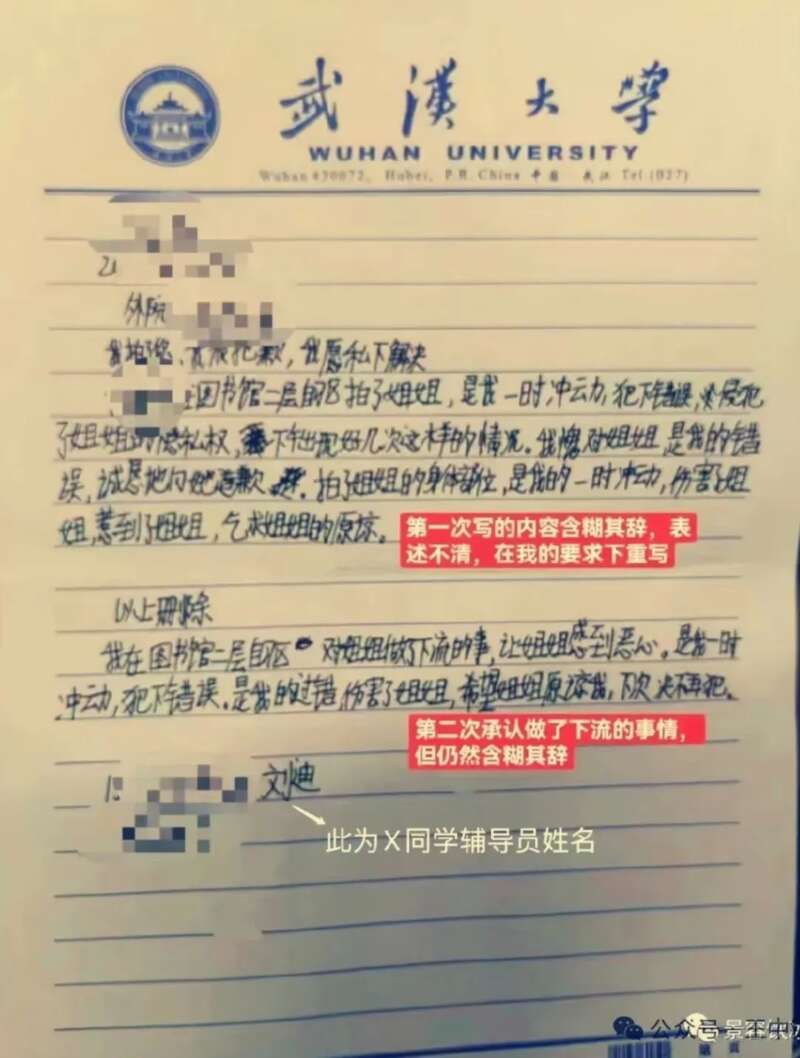 武漢大學
WUHAN UNIVERSITY
Wuhan 430072, Hubei, P.R. China 中国 武汉 Tel (027)
外院
歉, 我愿私下解决
在图书馆二层自习区拍了姐姐, 是我一时冲动, 犯下错误, 侵犯
了姐姐的隐私权, 下午出现好几次这样的情况。我愧对姐姐, 是我的错
误, 诚恳地向她道歉 拍了姐姐的身体部位, 是我的一时冲动, 伤害了姐
姐, 惹到了姐姐, 乞求姐姐的原谅。
第一次写的内容含糊其辞，表
述不清，在我的要求下重写
以上删除
我在图书馆二层自区 对姐姐做了下流的事, 让姐姐感到恶心。是我一时
冲动, 犯下错误。是我的过错, 伤害了姐姐, 希望姐姐原谅我, 下次决不再犯。
第二次承认做了下流的事情，
但仍然含糊其辞
刘迪
此为X同学辅导员姓名
公众号